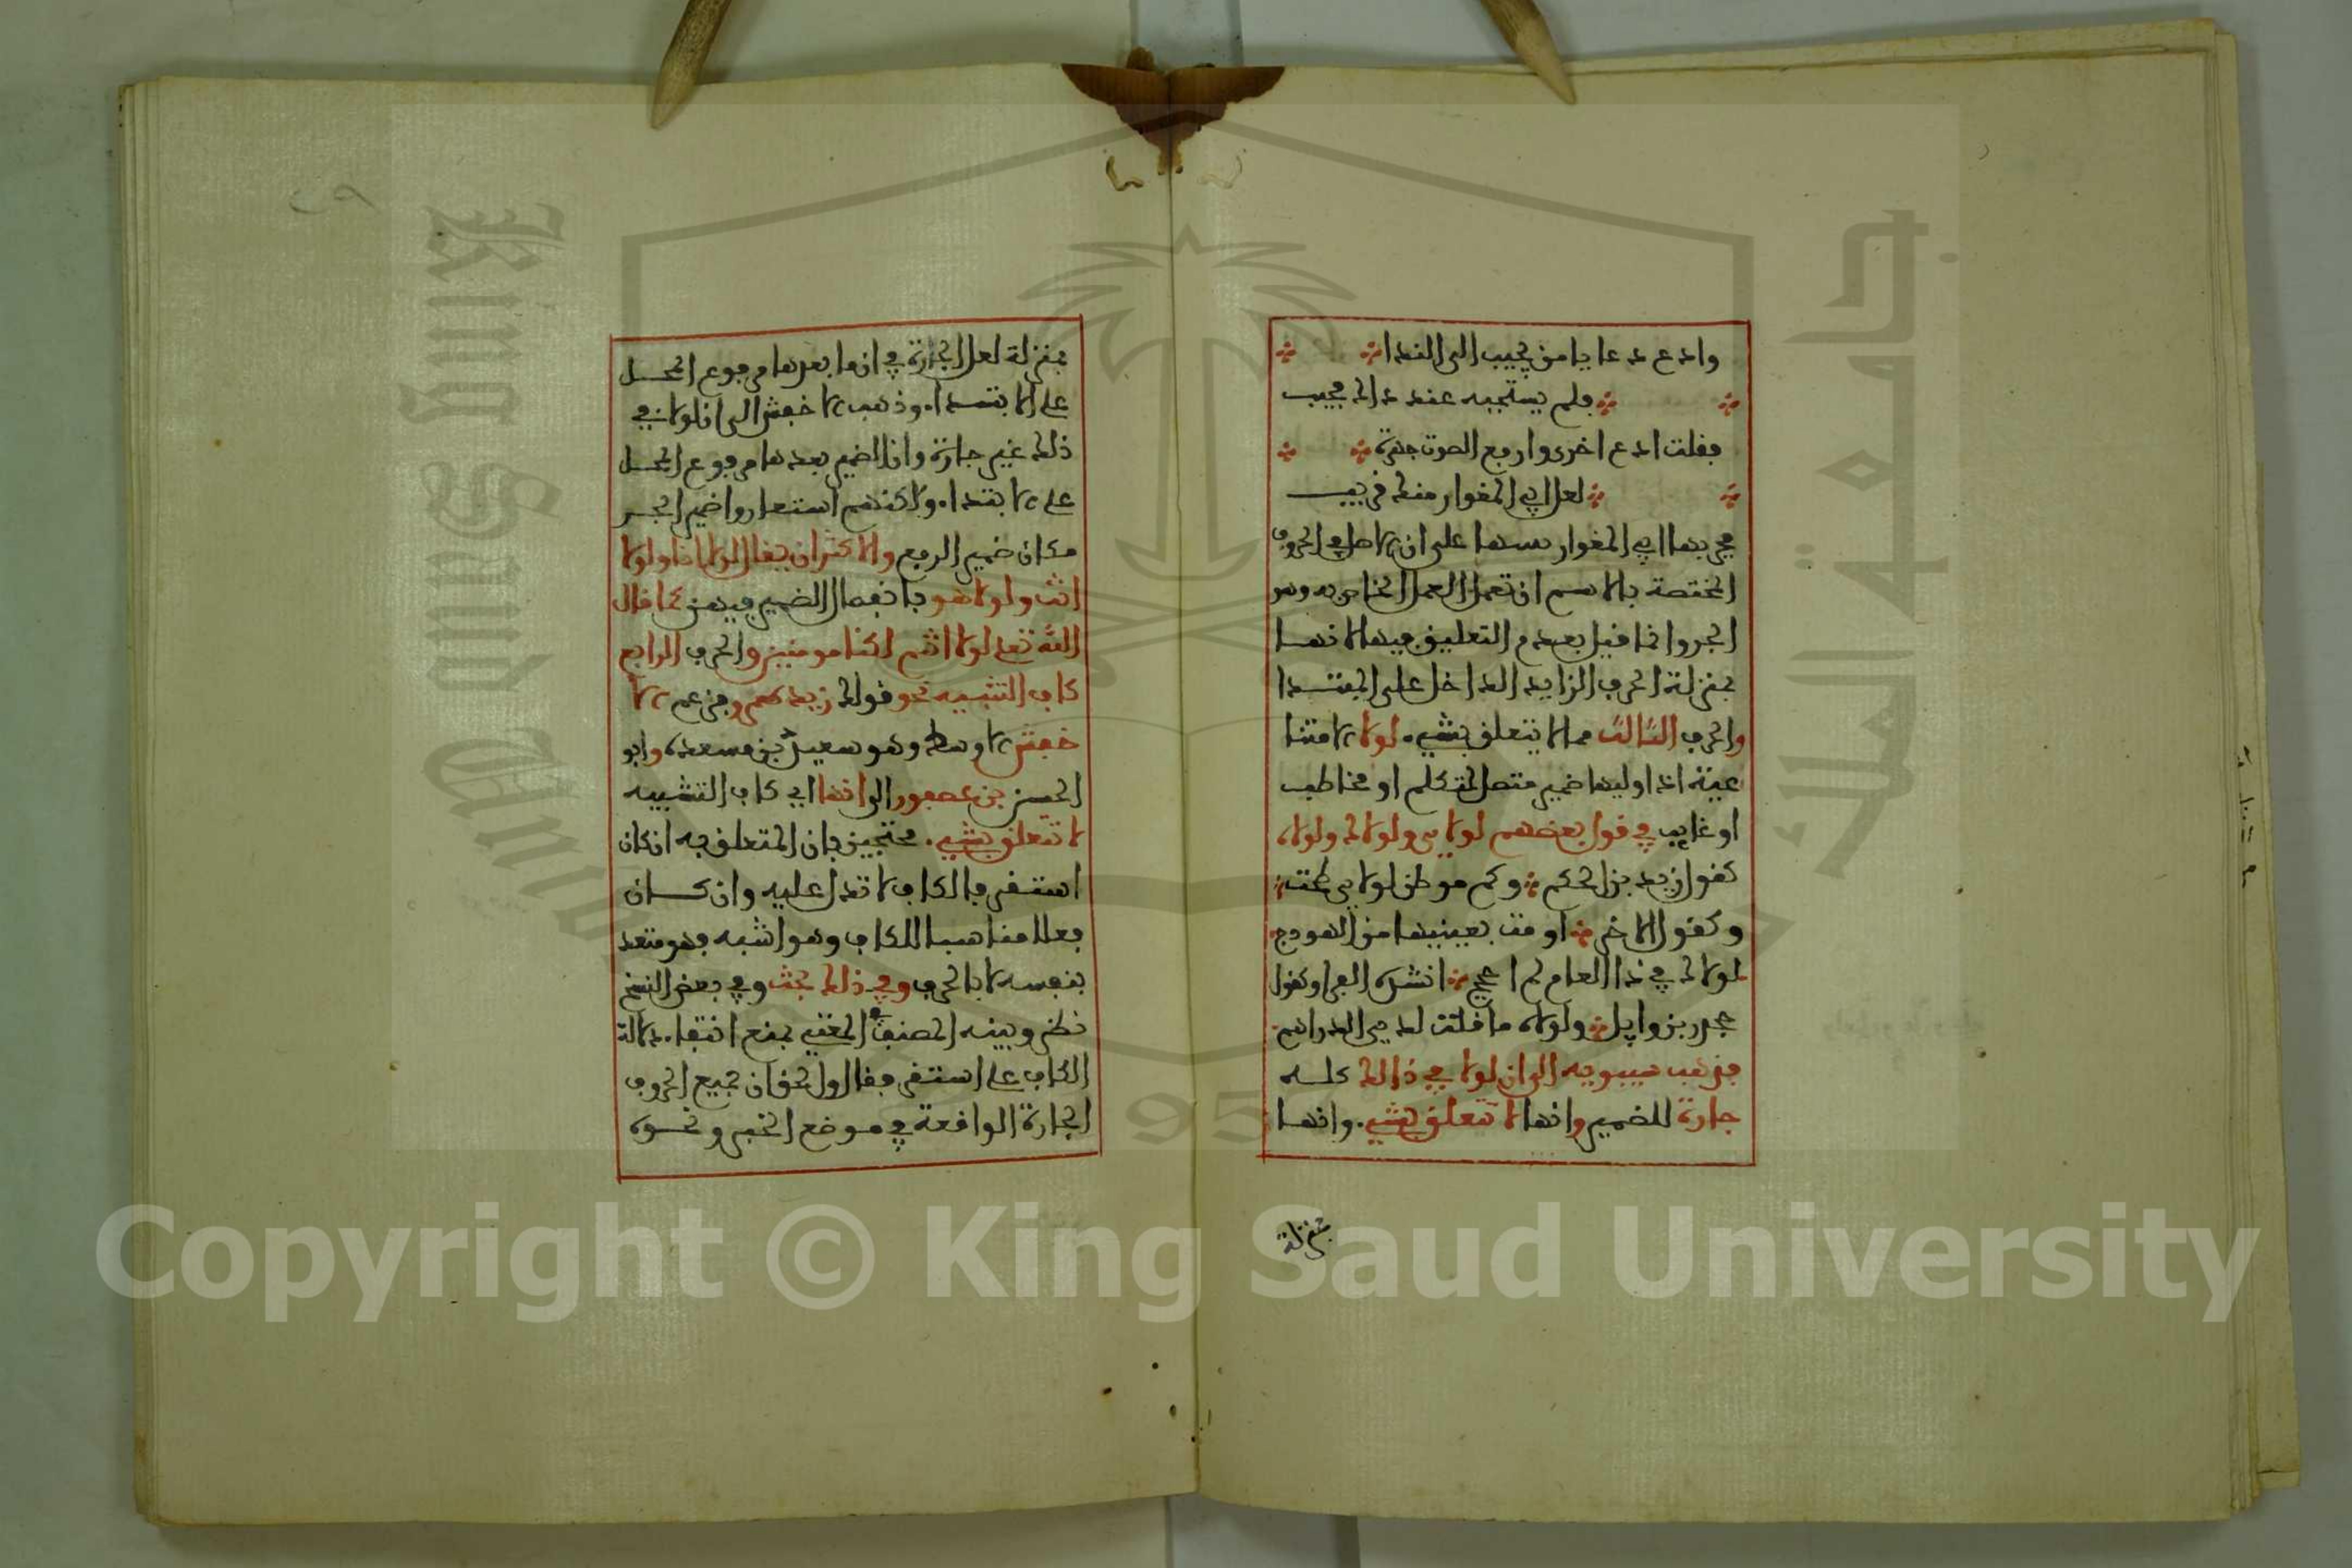 وادع دعا يا من يجيب الى الندا
فلم يستجبه عند ذاك مجيب
فقلت ادع اخرى وارفع الصوت جهرة
لعل ابي المغوار منك قريب
فجر بها ابي المغوار على ان الاصل في الحروف
المختصة بالاسم ان تعمل العمل الخاص به وهو
الجر وانما قيل بعدم التعليق فيها لانها
بمنزلة الحرف الزايد الداخل على المبتدا
والحرف الثالث مما لا يتعلق بشيء لولا الامتنا
عية اذا وليها ضمير متصل لمتكلم او مخاطب
او غايب في قول بعضهم لولاي ولولاك ولولاه
كقول زيد بن الحكم وكم موطن لولاي طحت
وكقول الاخر اومت بعينيها من الهودج
لولاك في ذا العام لم احجج انشده الفرا وكقول
جحدر بن وايل ولولاه ما قلت لدي الدراهم
فذهب سيبويه الى ان لولا في ذالك كله
جارة للضمير وانها لا تتعلق بشيء وانها
بمنزلة
بمنزلة لعل الجارة في ان ما بعدها مرفوع المحل
على الابتدا وذهب الاخفش الى ان لولا في
ذلك غير جارة وان الضمير بعدها مرفوع المحل
على الابتدا ولاكنهم استعاروا ضمير الجر
مكان ضمير الرفع والاكثر ان يقال لولا انا ولولا
انت ولولا هو بانفصال الضمير فيهن كما قال
الله تعلى لولا انتم لكنا مومنين والحرف الرابع
كاف التشبيه نحو قولك زيد كعمرو فزعم الا
خفش الاوسط وهو سعيد بن مسعدة وابو
الحسن بن عصفور الى انها اي كاف التشبيه
لا تتعلق بشيء محتجين بان المتعلق به ان كان
استقر فالكاف لا تدل عليه وان كان
فعلا مناسبا للكاف وهو اشبه فهو متعد
بنفسه لا بالحرف وفي ذلك بحث وفي بعض النسخ
نظر وبينه المصنف في المغني بمنع انتفا دلالة
الكاف على استقر فقال والحق ان جميع الحروف
الجارة الواقعة في موضع الخبر ونحوه
Copyright © King Saud University